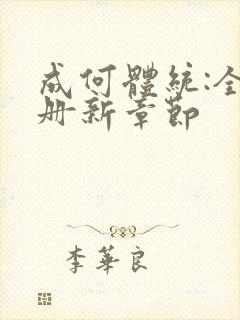 成何體統:全
册新章節
李華良